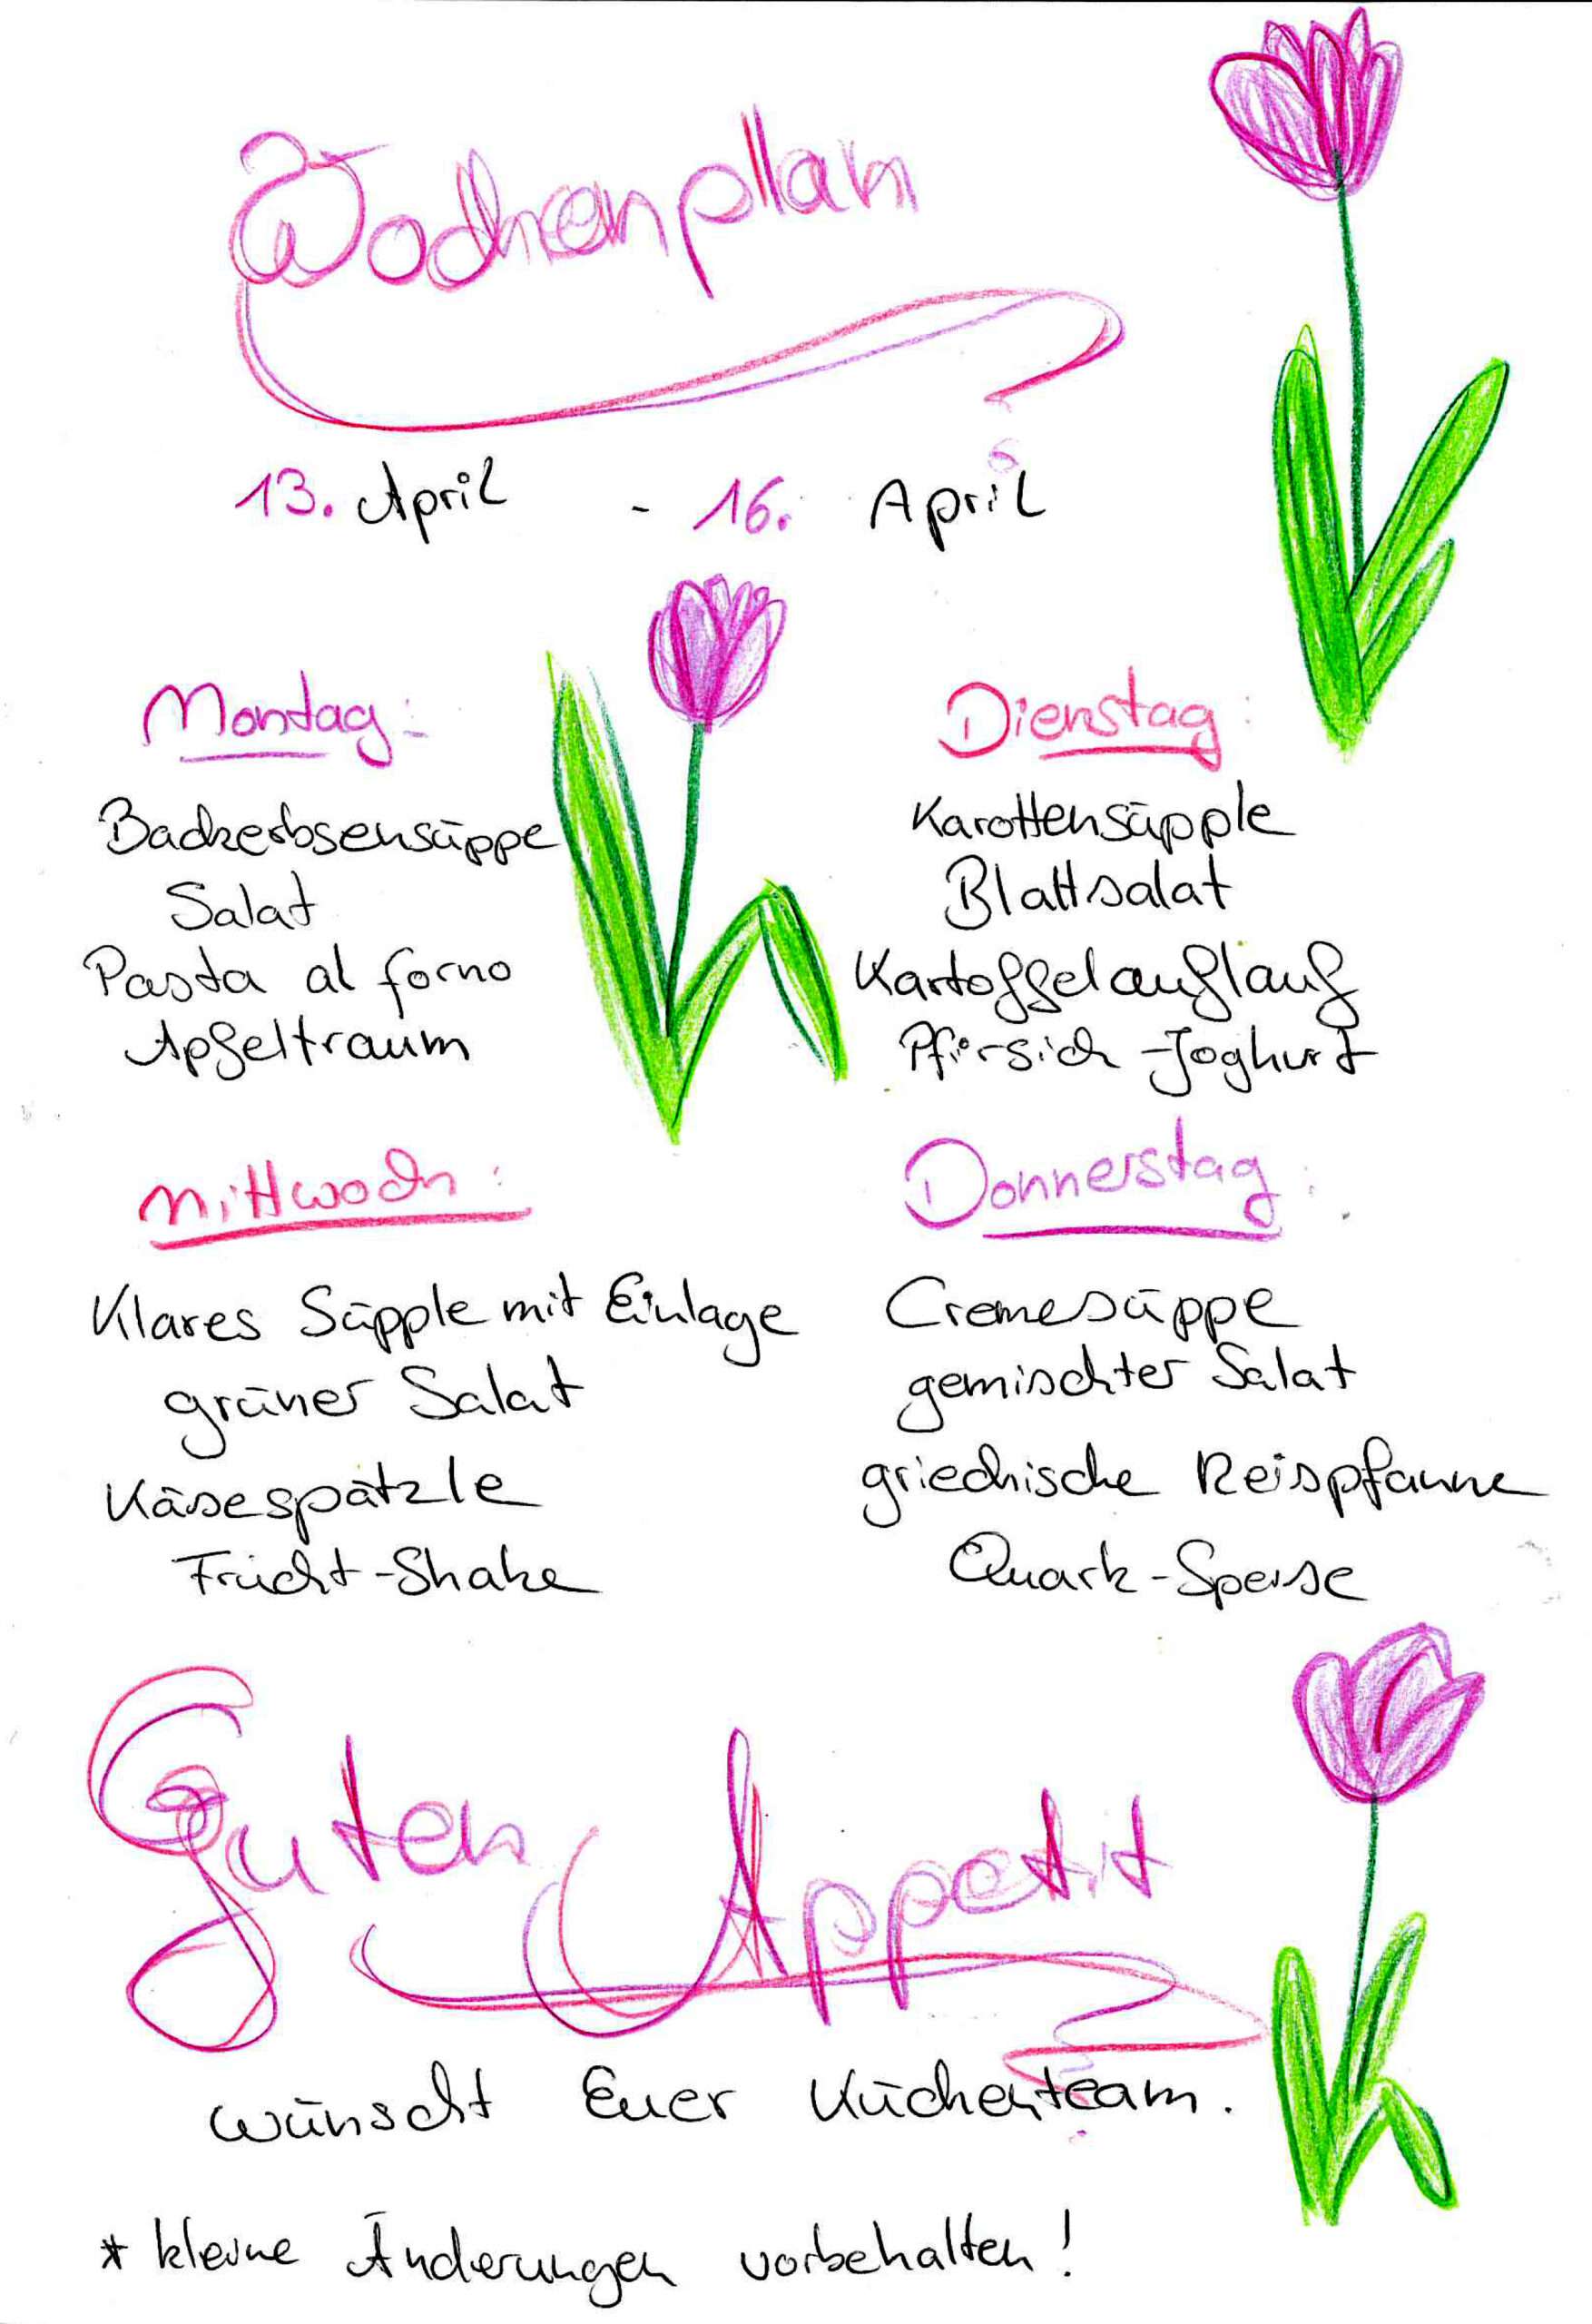 Wochenplan
13. April - 16. April
Montag:
Backerbsensuppe
Salat
Pasta al forno
Apfeltraum
Dienstag:
Karottensüpple
Blattsalat
Kartoffelauflauf
Pfirsich-Joghurt
Mittwoch:
Klares Süpple mit Einlage
grüner Salat
Käsespätzle
Frucht-Shake
Donnerstag:
Cremesuppe
gemischter Salat
griechische Reispfanne
Quark-Speise
Guten Appetit
wünscht Euer Küchenteam.
* kleine Änderungen vorbehalten!